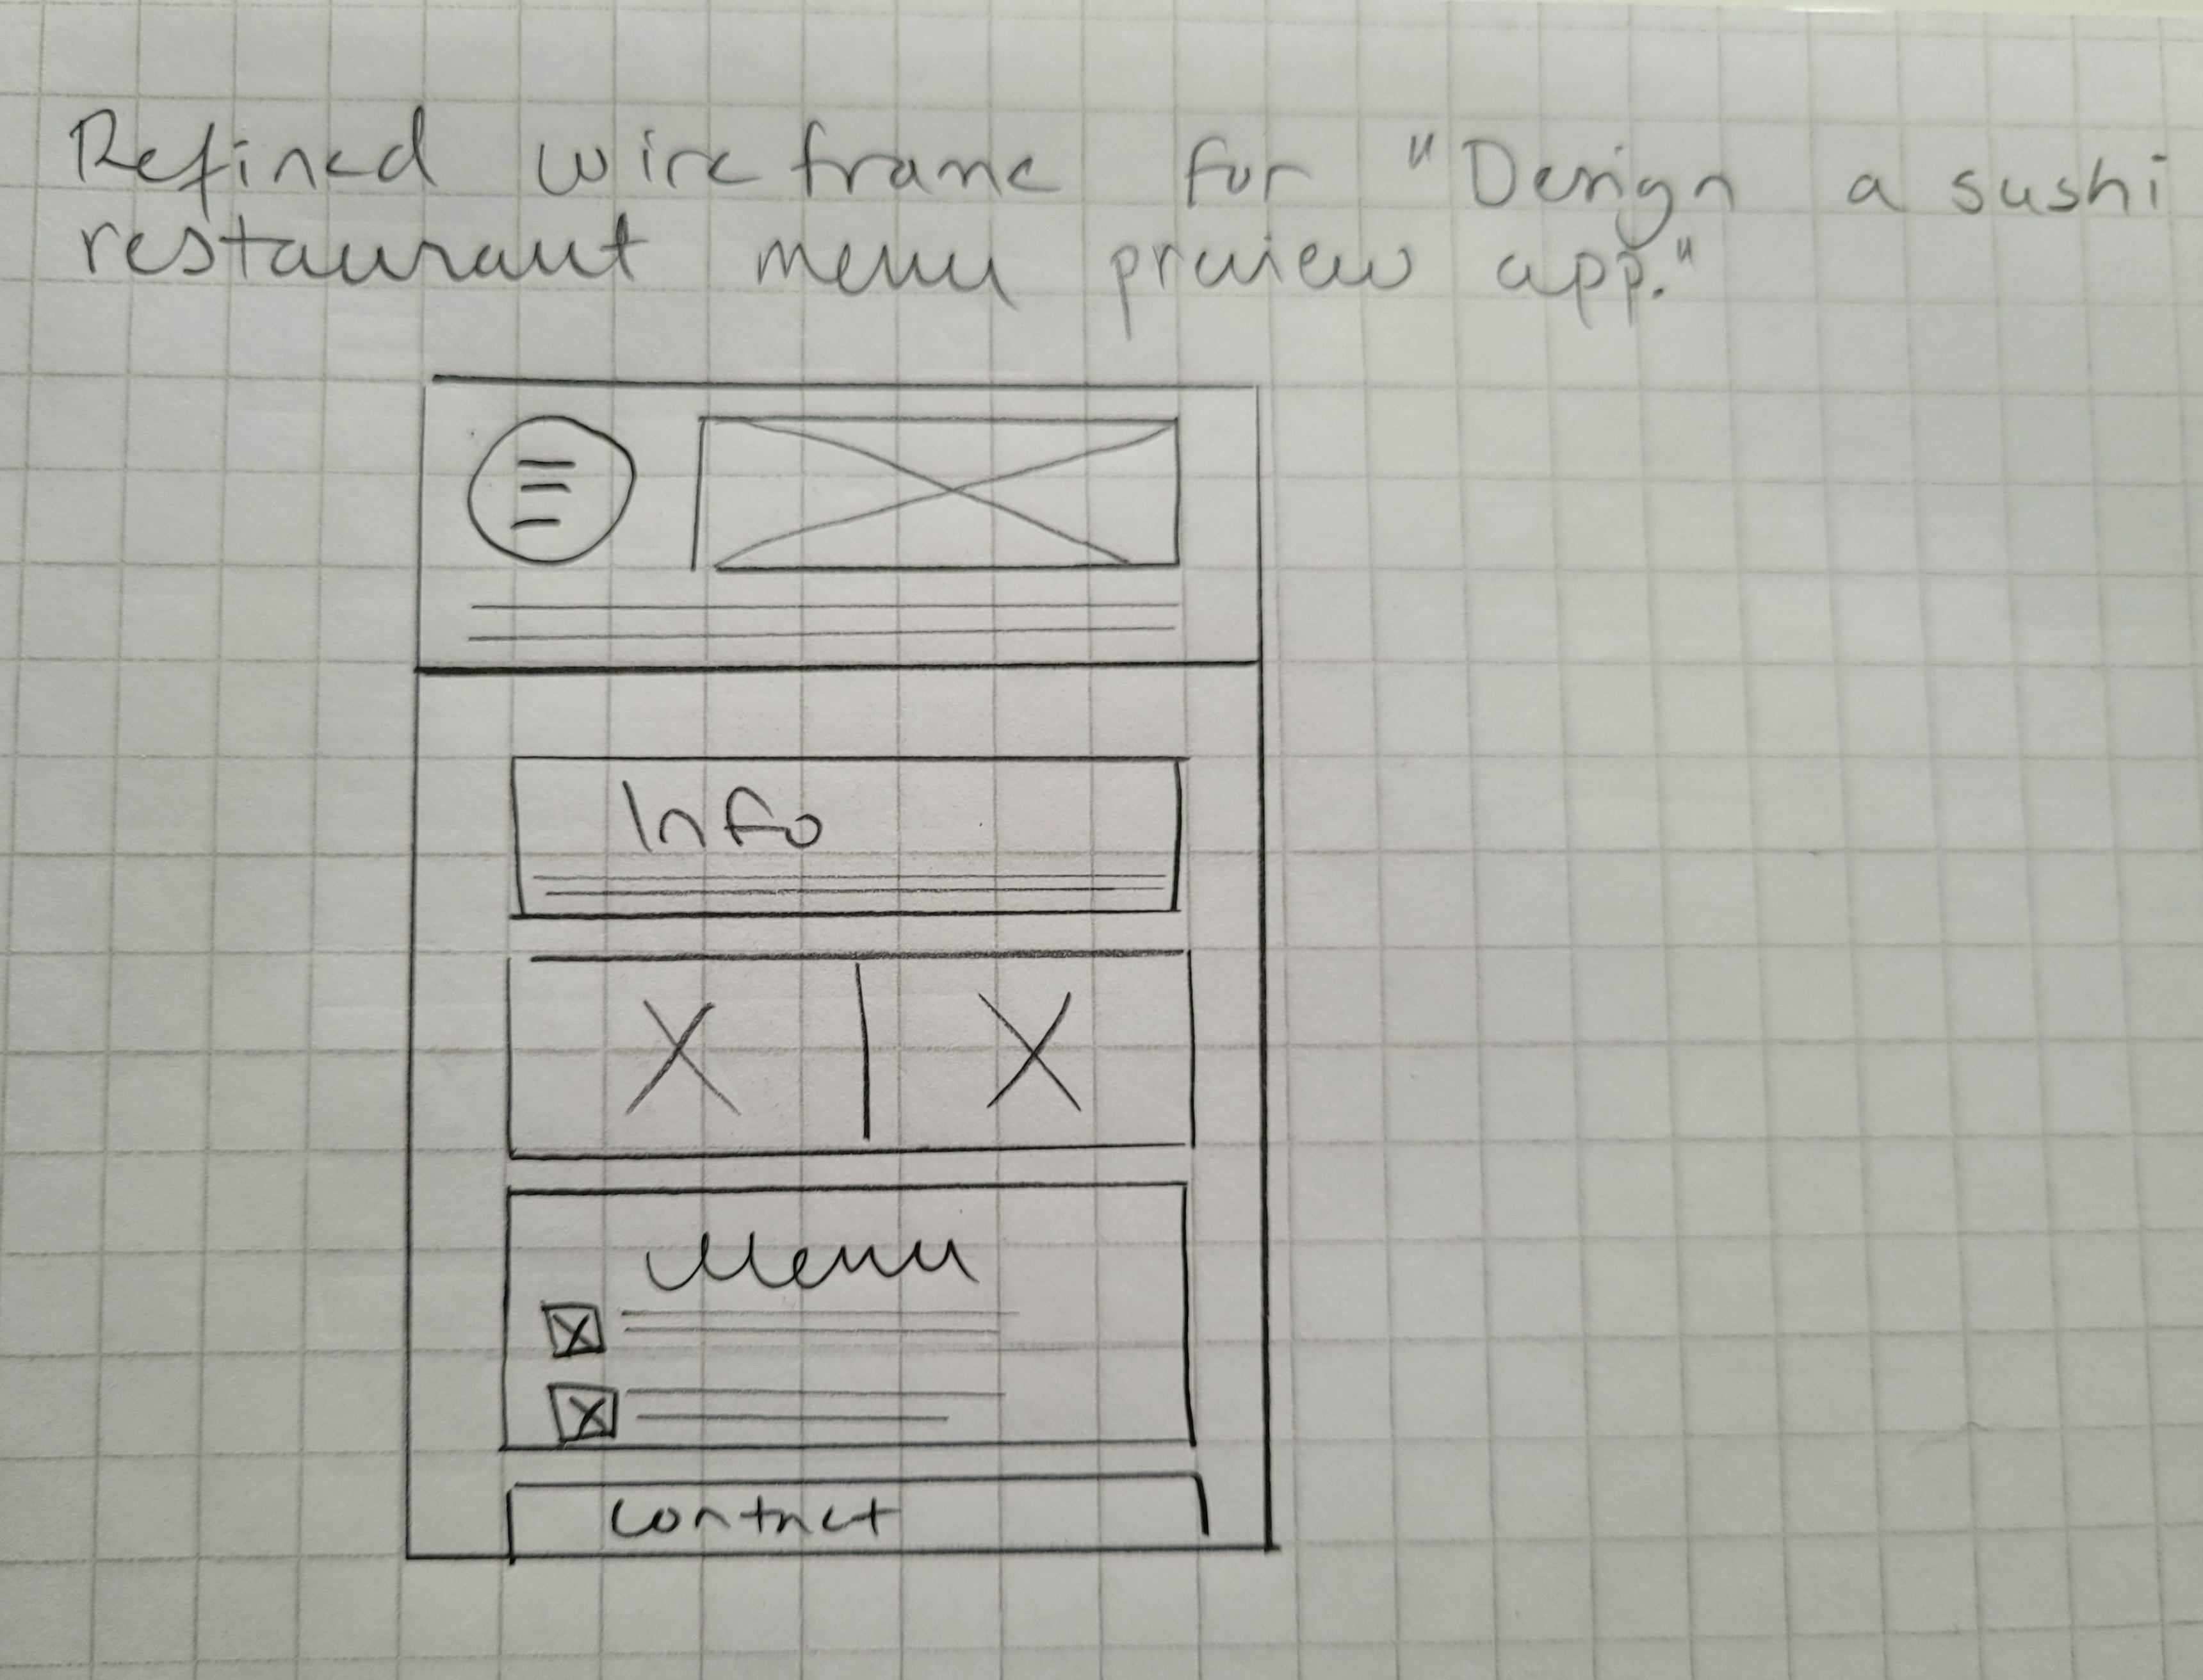 Refined wireframe for "Design a sushi
restaurant menu preview app."
Info
Menu
Contact